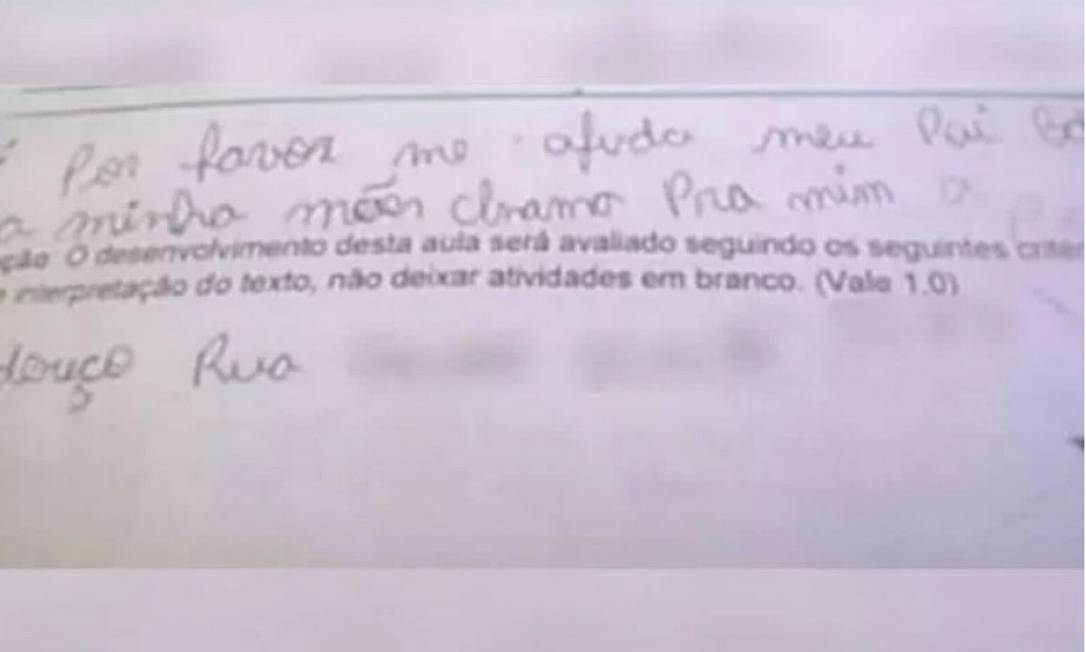 Por favor me ajuda meu Pai
a minha mãen chamo Pra mim a
ção O desenvolvimento desta aula será avaliado seguindo os seguintes crité
interpretação do texto, não deixar atividades em branco. (Vale 1.0)
Rua